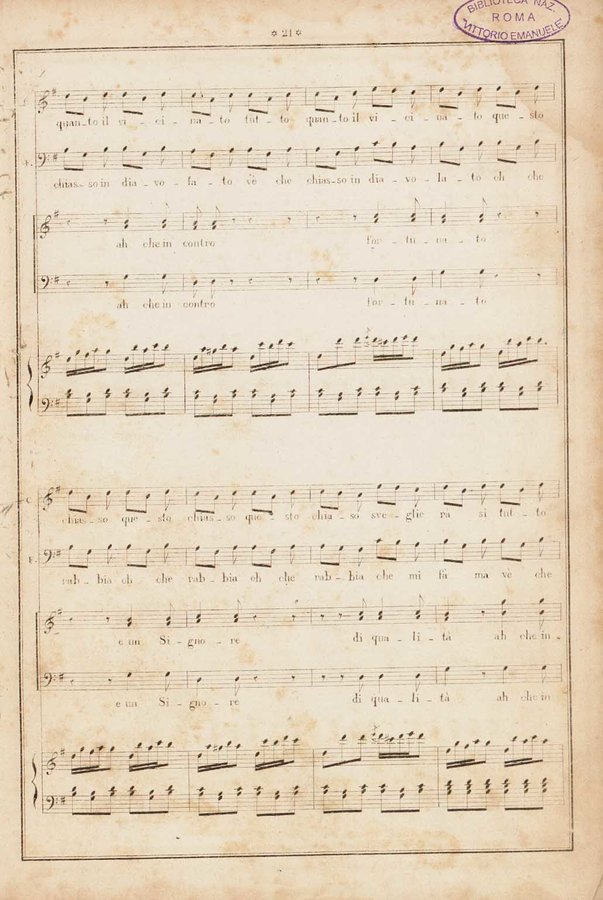 BIBLIOTECA NAZ.
ROMA
VITTORIO EMANUELE
21
quan_to il vi_ci_na_to tut_to quan_to il vi_ci_na_to que_sto
chias_so in dia_vo_la_to v'è che chias_so in dia_vo_la_to oh che
ah che in contro for_tu_na_to
ah che in contro for_tu_na_to
C.
chias_so que_sto chias_so que_sto chia_so sve_glie ra si tut_to
rab_bia oh che rab_bia oh che rab_bia che mi fà ma ve che
e un Si_gno_re di qua_li_tà ah che in_
e un Si_gno_re di qua_li_tà ah che in